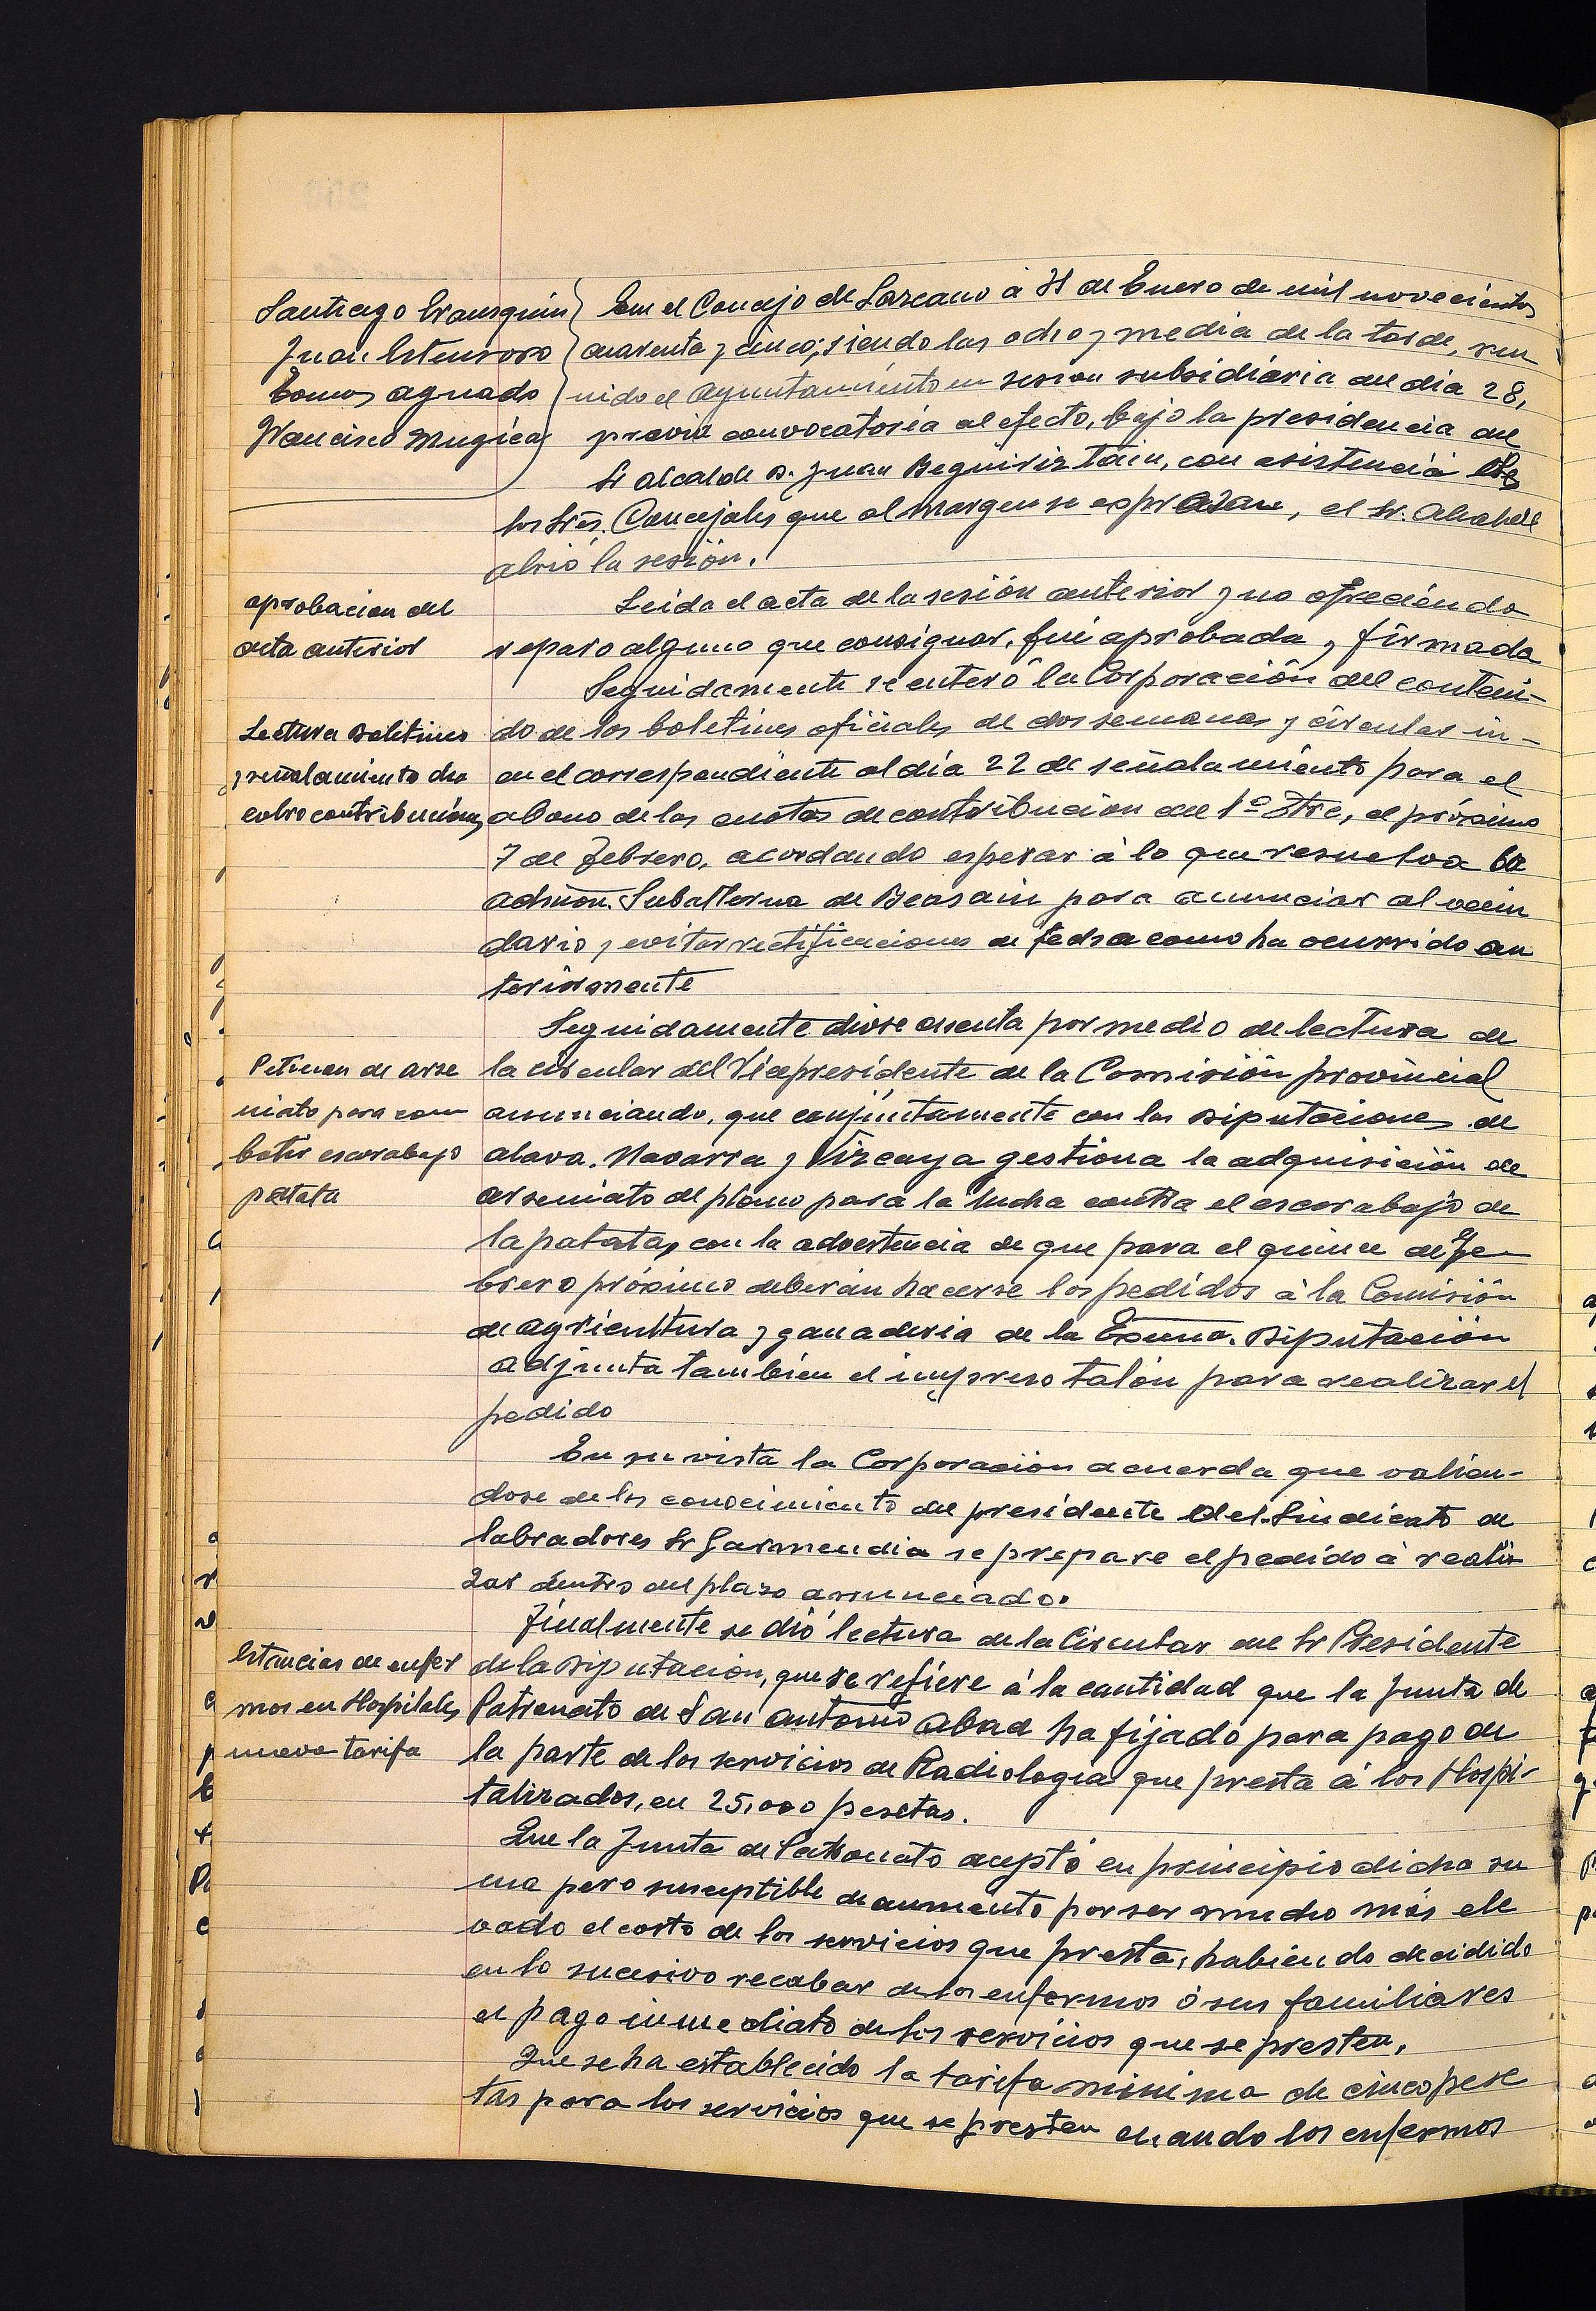 Santiago Irausquin
Juan Estensoro
Tomas aguado
Francisco Mugica
En el Concejo de Lazcano á 31 de Enero de mil novecientos
cuarenta y cinco; siendo las ocho y media de la tarde, reu
nido el Ayuntamiento en sesion subsidiária del dia 28,
previa convocatoria al efecto, bajo la presidencia del
Sr alcalde D. Juan Beguiristain, con asistencia de
los Sres. Concejales que al margen se expresan, el Sr. Alcalde
abrió la sesión.
aprobacion del
acta anterior
Leida el acta de la sesión anterior y no ofreciendo
reparo alguno que consignar, fué aprobada y firmada
Lectura Boletines
y señalamiento dia
cobro contribuciones
Seguidamente se enteró la Corporación del conteni-
do de los boletines oficiales de dos semanas y circular in-
en el correspondiente al día 22 de señalamiento para el
abono de las cuotas de contribucion del 1º Stre, el próximo
7 de Febrero, acordando esperar á lo que resuelva la
admon. Subalterna de Beasain para anunciar al vecin
dario y evitar rectificaciones de fecha como ha ocurrido an
teriormente
Peticion de arse
niato para com
batir escarabajo
patata
Seguidamente diose cuenta por medio de lectura de
la circular del Vicepresidente de la Comisión provincial
anunciando, que conjuntamente con las Diputaciones de
alava, Navarra y Vizcaya gestiona la adquisición de
arseniato de plomo para la lucha contra el escarabajo de
la patata, con la advertencia de que para el quince de Fe
brero próximo deberán hacerse los pedidos á la Comisión
de agricultura y ganaderia de la Excma. Diputación
adjunta tambien el impreso talón para realizar el
pedido
En su vista la Corporación acuerda que valien-
dose de los conocimiento del presidente del Sindicato de
labradores Sr Garmendia se prepare el pedido á reali
zar dentro del plazo anunciado.
Estancias de enfer
mos en Hospitales,
nueva tarifa
Finalmente se dió lectura de la Circular del Sr Presidente
de la Diputación, que se refiere á la cantidad que la Junta de
Patronato de San antonio Abad ha fijado para pago de
la parte de los servicios de Radiologia que presta á los Hospi-
talizados, en 25,000 pesetas.
Que la Junta de Patronato aceptó en principio dicha su
ma pero susceptible de aumento por ser mucho más ele
vado el costo de los servicios que presta, habiendo decidido
en lo sucesivo recabar de los enfermos ó sus familiares
el pago inmediato de los servicios que se presten,
Que se ha establecido la tarifa minima de cinco pese
tas para los servicios que se presten cuando los enfermos